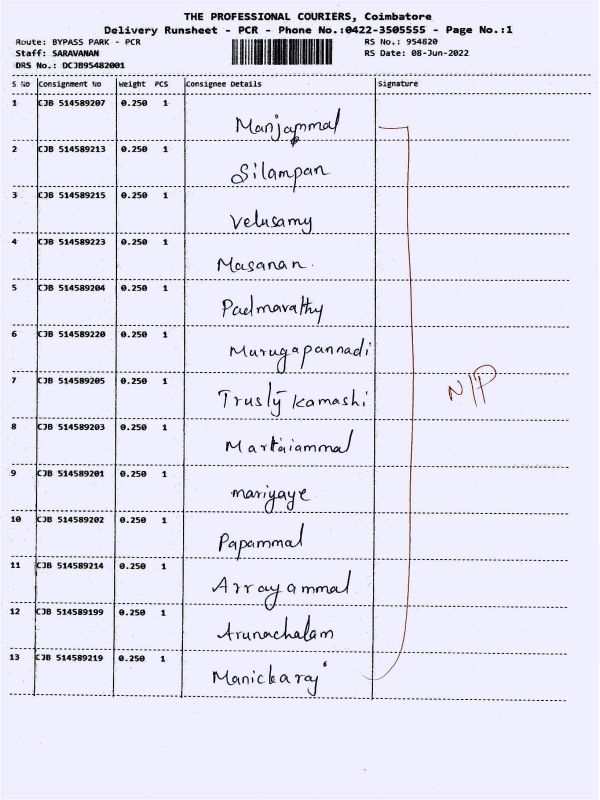 THE PROFESSIONAL COURIERS, Coimbatore
Delivery Runsheet - PCR - Phone No.:0422-3505555 - Page No.:1
Route: BYPASS PARK - PCR RS No.: 954820
Staff: SARAVANAN RS Date: 08-Jun-2022
DRS No.: DCJB95482001
S No Consignment No Weight PCS Consignee Details Signature
1 CJB 514589207 0.250 1
Manjammal
2 CJB 514589213 0.250 1
Silampan
3 CJB 514589215 0.250 1
Velusamy
4 CJB 514589223 0.250 1
Masanan.
5 CJB 514589204 0.250 1
Padmavathy
6 CJB 514589220 0.250 1
Murugapannadi
7 CJB 514589205 0.250 1
Trusty Kamashi
N/P
8 CJB 514589203 0.250 1
Martaiammal
9 CJB 514589201 0.250 1
mariyaye
10 CJB 514589202 0.250 1
Papammal
11 CJB 514589214 0.250 1
Arrayammal
12 CJB 514589199 0.250 1
Arunachalam
13 CJB 514589219 0.250 1
Manickaraj